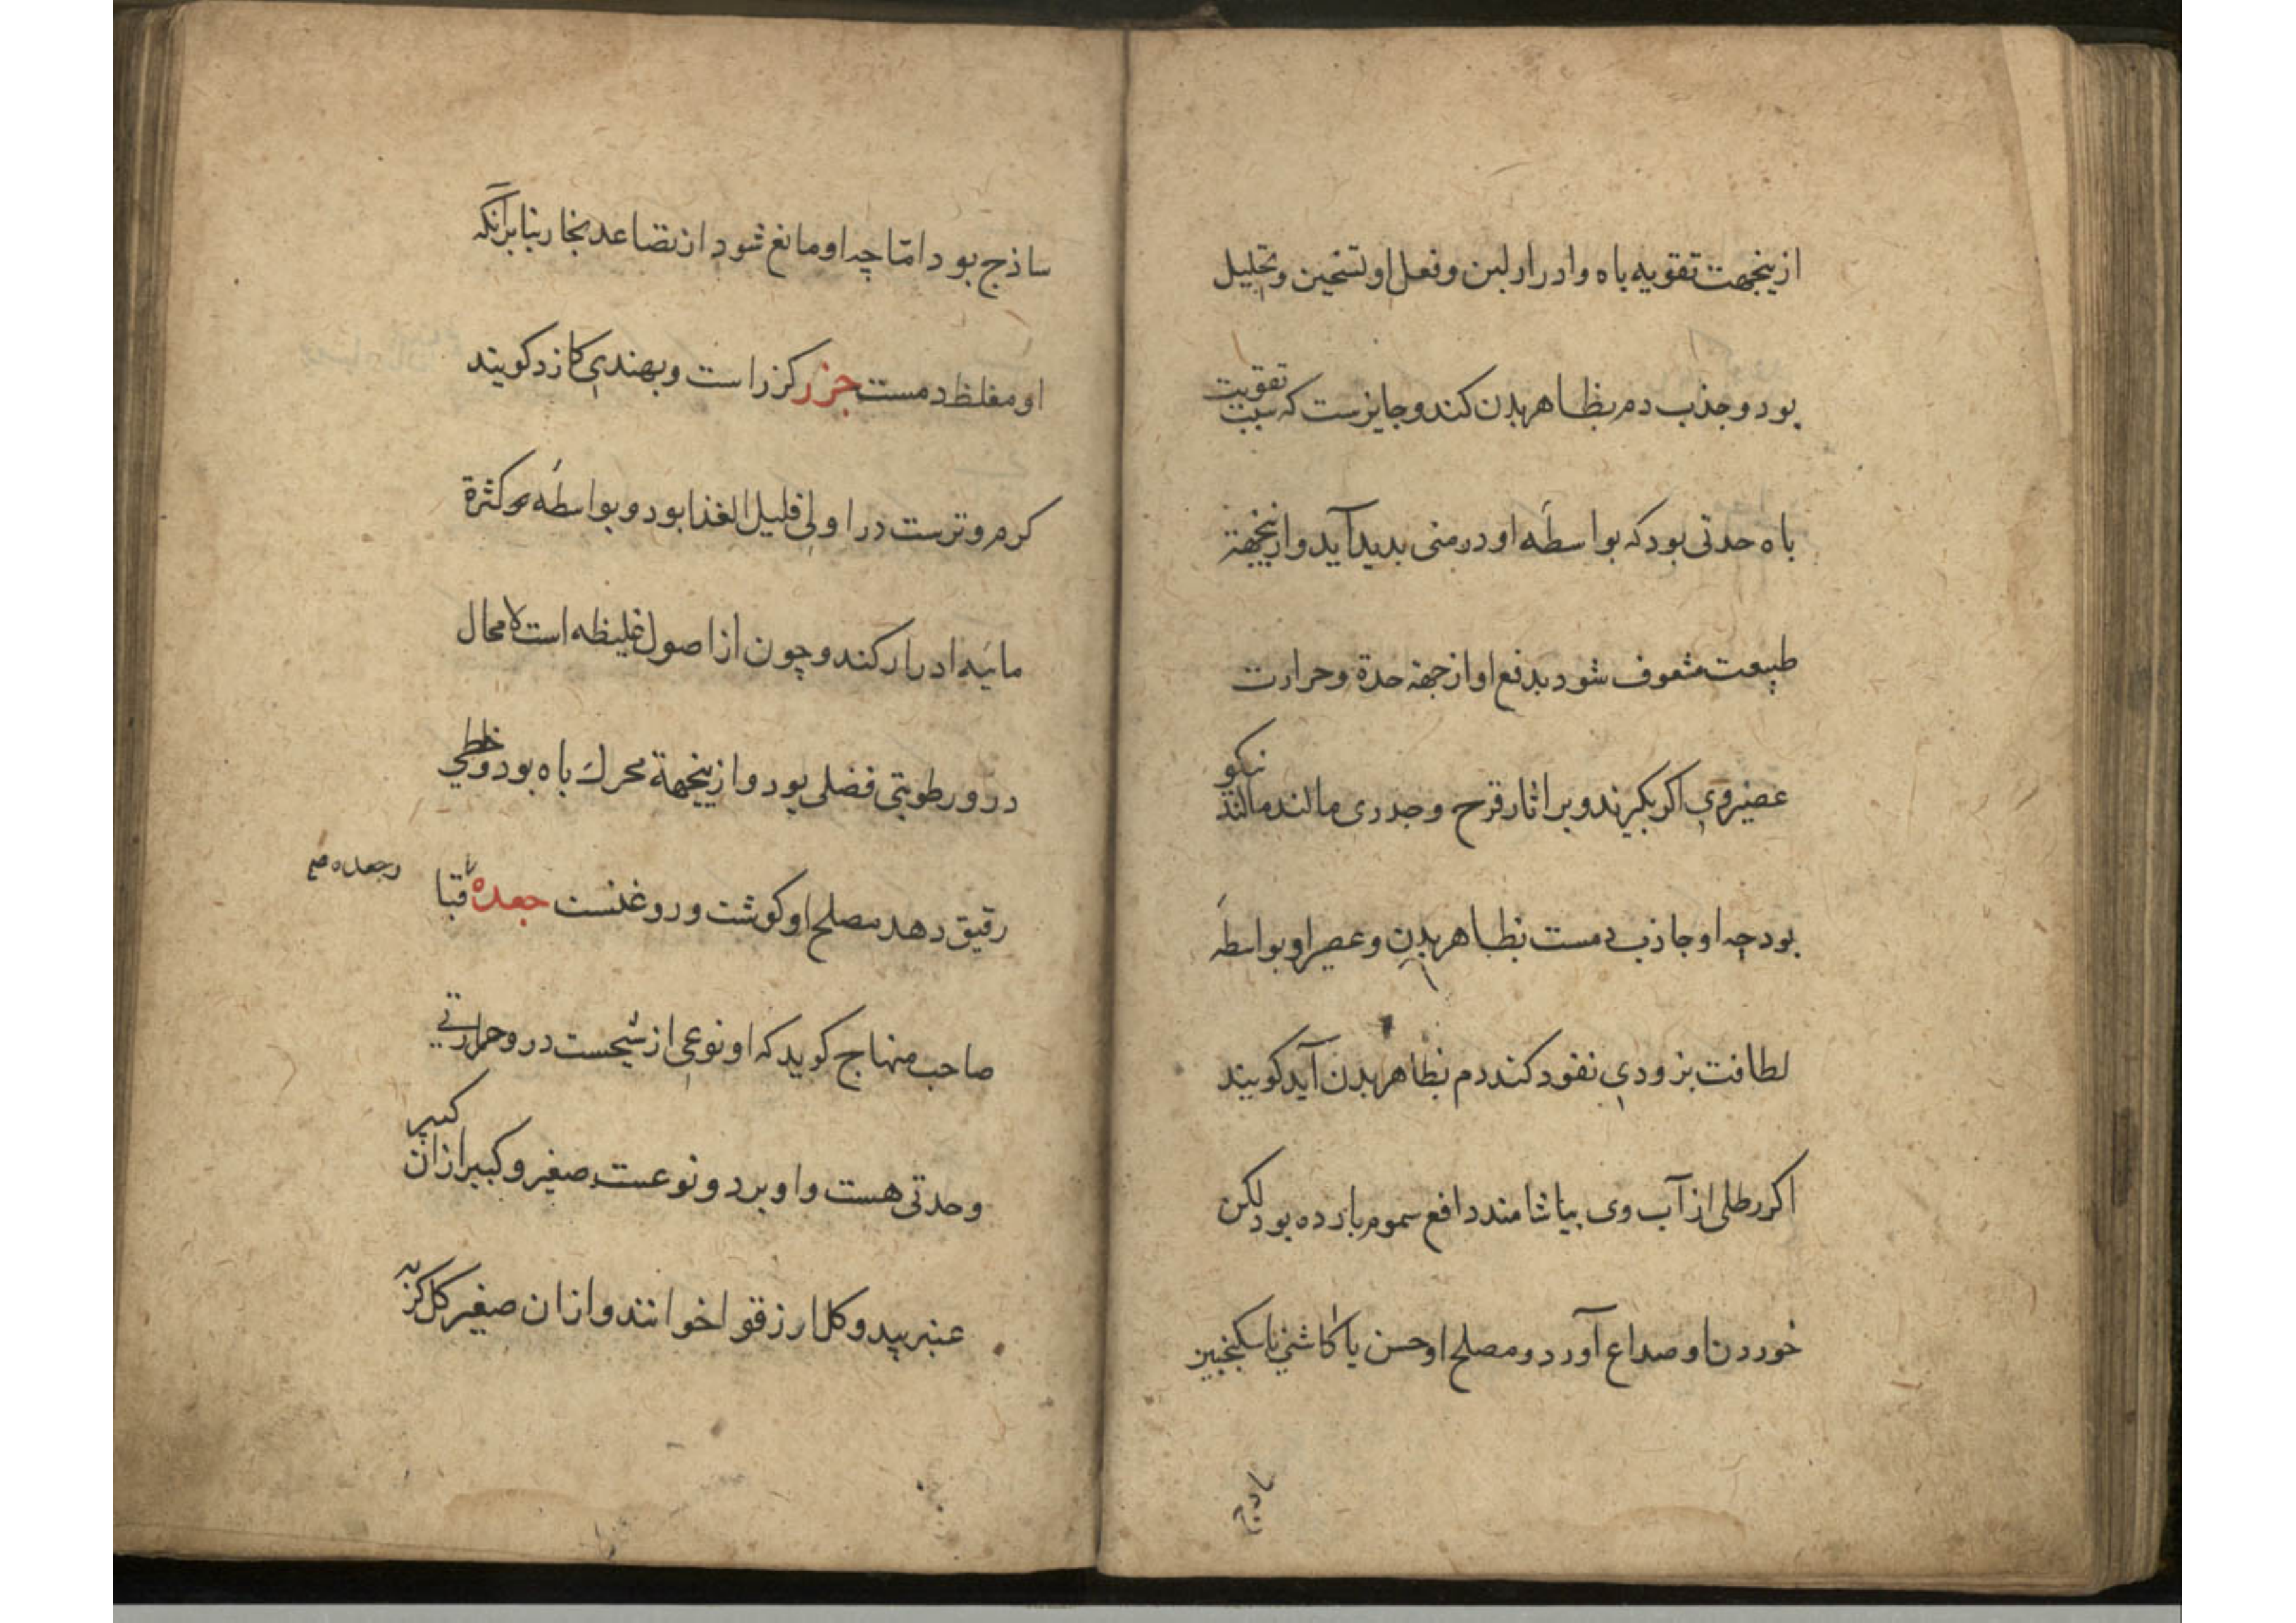 ازینجهت تقویه باه وادرار لبن وفعل او تسخین وتحلیل
بود وجذب دم بظاهر بدن کند وجایزست که سبب تقویت
باه حدتی بود که بواسطه او در منی بدید آید وازینجهة
طبیعت مشعوف شود بدفع او از جهة حدة وحرارت
عصیر وی اکر بکیرند وبر اثار قرح وجدری مالند مالند نیکو
بود چه او جاذب دمست بظاهر بدن وعصیر او بواسطه
لطافت بزودی نفوذ کند دم بظاهر بدن آید کویند
اکر رطلی از آب وی بیاشامند دافع سموم بارده بود لکن
خوردن او صداع آورد ومصلح او خس یا کاشنی یا سکنجبین
ساذج
ساذج بود امّا چه او مانع شود از تصاعد بخار بنا بر آنکه
او مغلظ دمست جزر کزر است وبهندی کازد کویند
کرم وترست در اولی قلیل الغذا بود وبواسطه کثرة
مائیه ادرار کند وچون از اصول غلیظه است لا محال
درو رطوبتی فضلی بود وازینجهة محرك باه بود وخلطی
رقیق دهد مصلح او کوشت وروغنست جعده قبا
وجعده
صاحب منهاج کوید که او نوعی از شیحست درو حرارتی
وحدتی هست واو بر دو نوعست صغیر وکبیر از ان کبیر
عنبر بید وکل ارزقو اخوانند واز ان صغیر کل کزبه